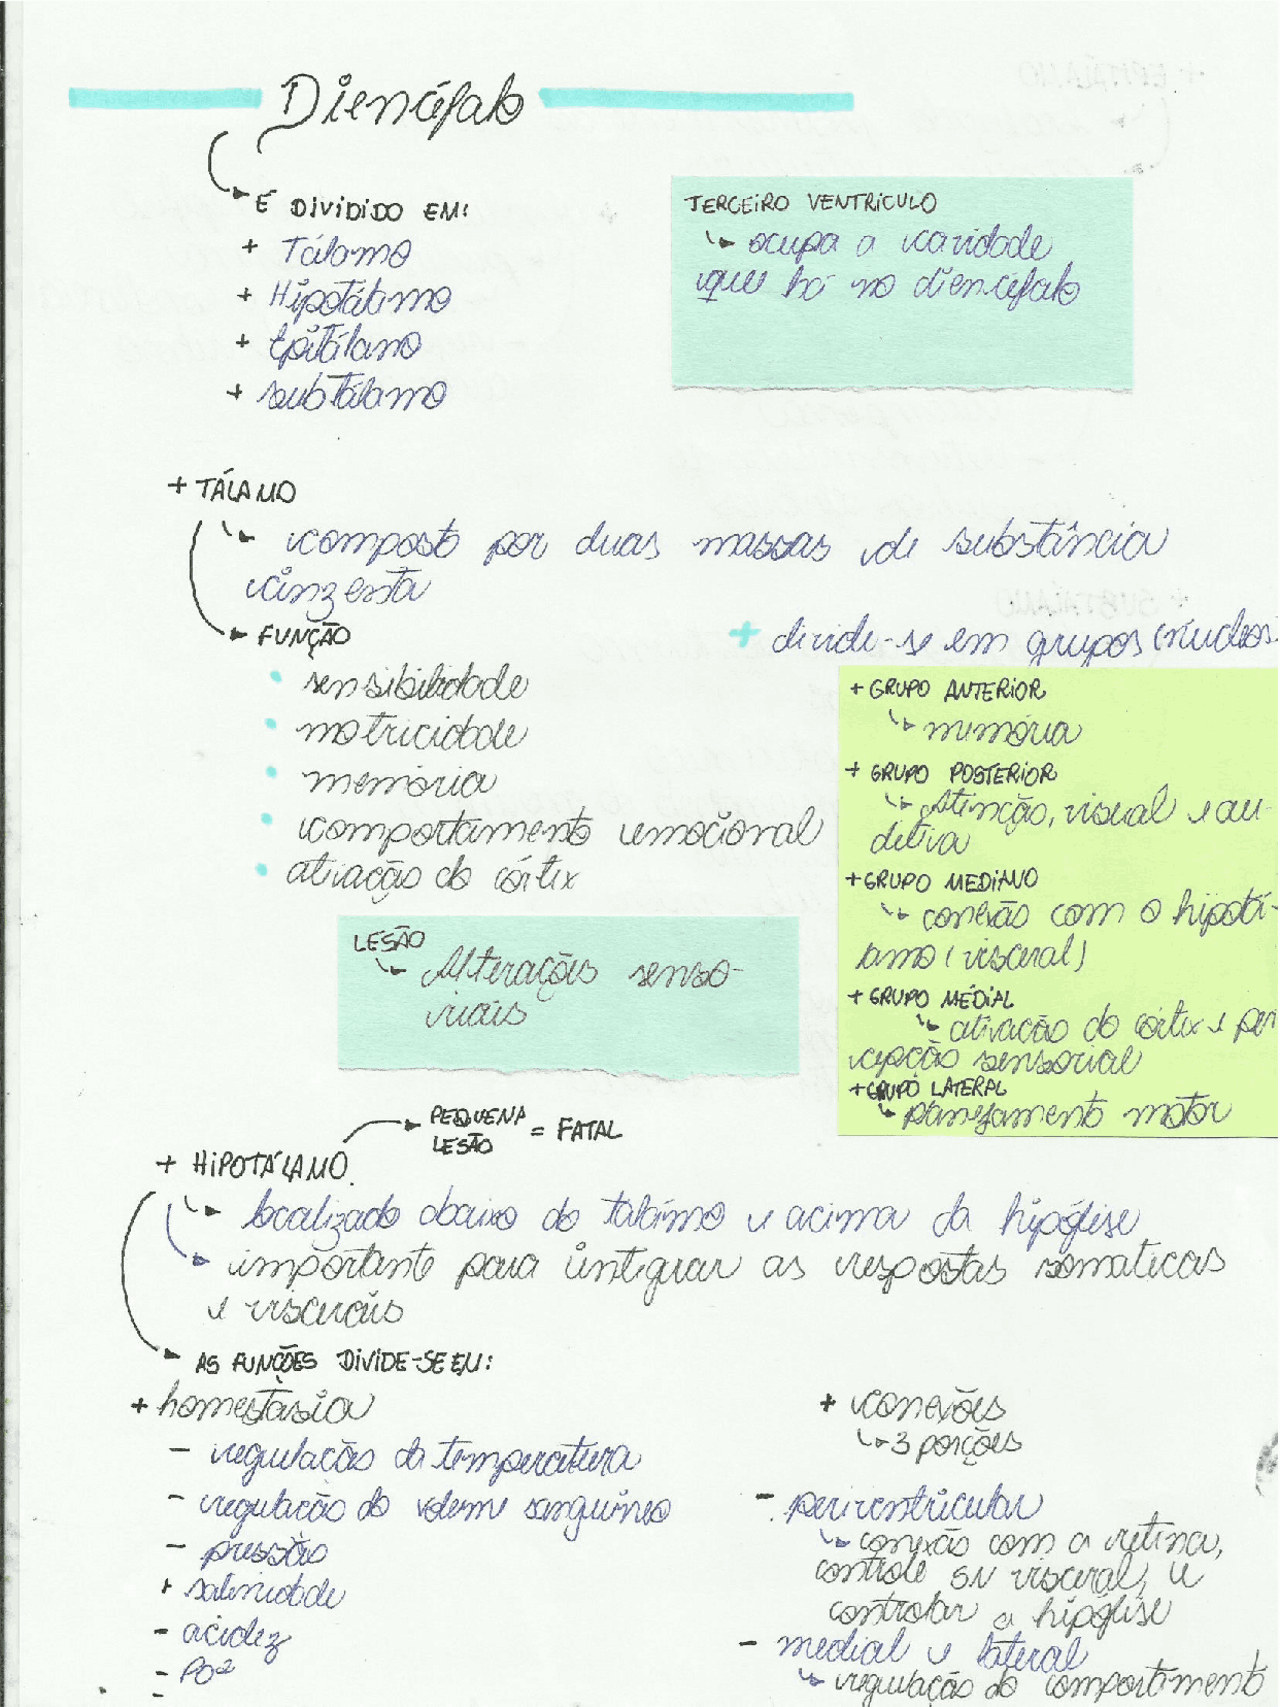 Diencéfalo
É DIVIDIDO EM:
+ Tálamo
+ Hipotálamo
+ Epitálamo
+ subtálamo
TERCEIRO VENTRICULO
↳ ocupa a cavidade
que há no diencéfalo
+ TÁLAMO
↳ composto por duas massas de substância
cinzenta
FUNÇÃO
• sensibilidade
• motricidade
• memória
• comportamento emocional
• ativação do córtex
+ divide-se em grupos (núcleos
+ GRUPO ANTERIOR
↳ memória
+ GRUPO POSTERIOR
↳ Atenção, visual e au-
ditiva
+ GRUPO MEDIANO
↳ conexão com o hipotá-
lamo (visceral)
+ GRUPO MÉDIAL
↳ ativação do córtex e per
cepção sensorial
+ GRUPO LATERAL
↳ planejamento motor
LESÃO
↳ Alterações senso-
riais
+ HIPOTÁLAMO
PEQUENA
LESÃO = FATAL
↳ localizado abaixo do tálamo e acima da hipófise
↳ importante para integrar as respostas somaticas
e viscerais
AS FUNÇÕES DIVIDE-SE EM:
+ homestásia
- regulação da temperatura
- regulação do volume sanguíneo
- pressão
+ salinidade
- acidez
- PO²
+ conexões
↳ 3 porções
- periventricular
↳ conexão com a retina,
controle SN visceral, e
controlar a hipófise
- medial e lateral
↳ regulação do comportamento